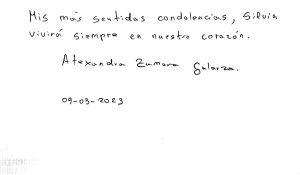 Mis más sentidas condolencias, Silvia
vivirá siempre en nuestro corazón.
Alexandra Zumara Galarza.
09-03-2023